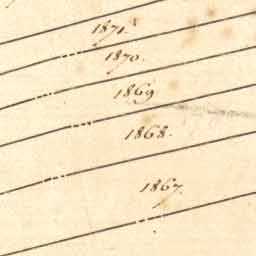 1871.
1870.
1869
1868.
1867.